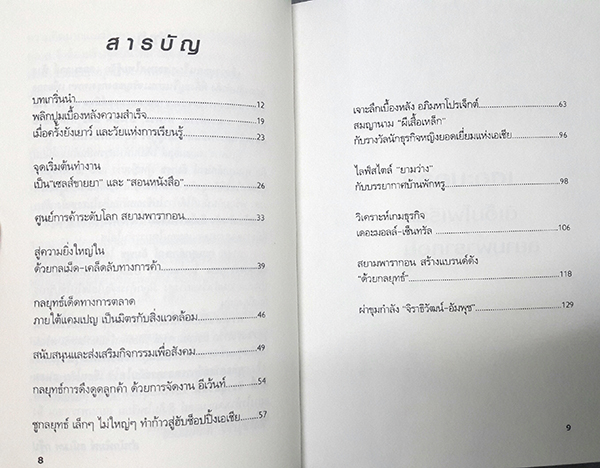 สารบัญ
บทเกริ่นนำ 12
พลิกปูมเบื้องหลังความสำเร็จ 19
เมื่อครั้งยังเยาว์ และวัยแห่งการเรียนรู้ 23
จุดเริ่มต้นทำงาน
เป็น"เซลส์ขายยา" และ "สอนหนังสือ" 26
ศูนย์การค้าระดับโลก สยามพารากอน 33
สู่ความยิ่งใหญ่ใน
ด้วยกลเม็ด-เคล็ดลับทางการค้า 39
กลยุทธ์เด็ดทางการตลาด
ภายใต้แคมเปญ เป็นมิตรกับสิ่งแวดล้อม 46
สนับสนุนและส่งเสริมกิจกรรมเพื่อสังคม 49
กลยุทธ์การดึงดูดลูกค้า ด้วยการจัดงาน อีเว้นท์ 54
ชูกลยุทธ์ เล็กๆ ไม่ใหญ่ๆ ทำก้าวสู่ฮับช็อปปิ้งเอเชีย 57
8
เจาะลึกเบื้องหลัง อภิมหาโปรเจ็กต์ 63
สมญานาม "ผีเสื้อเหล็ก"
กับรางวัลนักธุรกิจหญิงยอดเยี่ยมแห่งเอเชีย 96
ไลฟ์สไตล์ "ยามว่าง"
กับบรรยากาศบ้านพักหรู 98
วิเคราะห์เกมธุรกิจ
เดอะมอลล์-เซ็นทรัล 106
สยามพารากอน สร้างแบรนด์ดัง
"ด้วยกลยุทธ์" 118
ผ่าขุมกำลัง "จิราธิวัฒน์-อัมพุช" 129
9